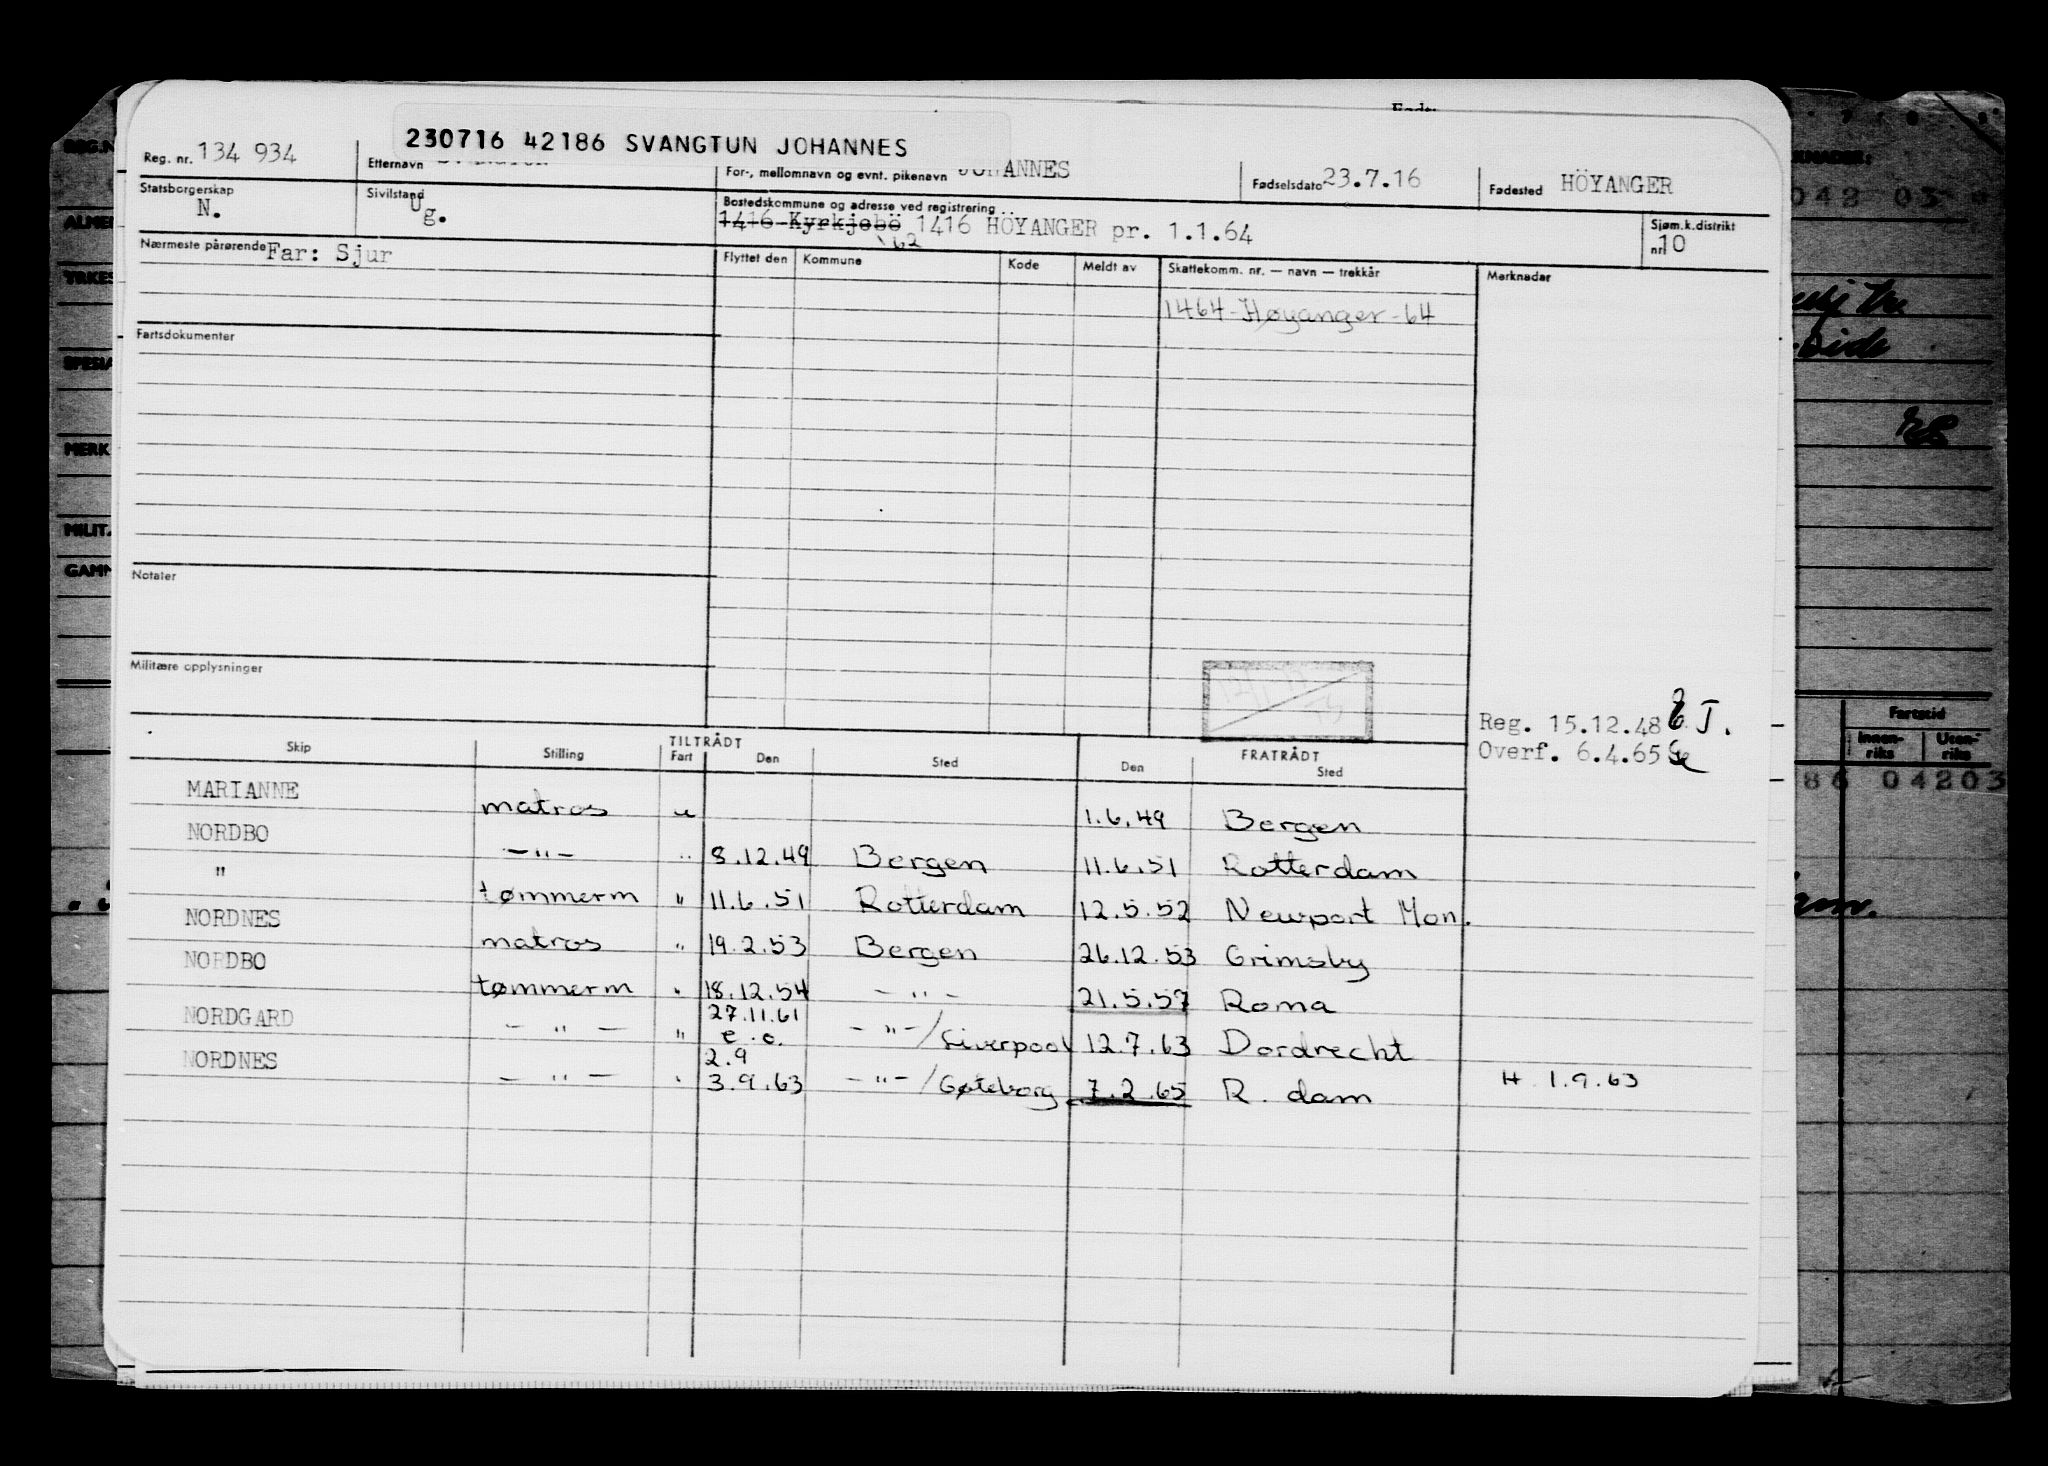 230716 42186 SVANGTUN JOHANNES
Reg. nr. 134 934
Etternavn
For-, mellomnavn og evnt. pikenavn JOHANNES
Fødselsdato 23.7.16
Fødested HÖYANGER
Statsborgerskap N.
Sivilstand Ug.
Bostedskommune og adresse ved registrering
1416 Kyrkjebö 1416 HÖYANGER pr. 1.1.64
Sjøm.k.distrikt nr. 10
Nærmeste pårørende Far: Sjur
Flyttet den Kommune Kode Meldt av Skattekomm. nr. — navn — trekkår Merknader
1464-Høyanger-64
Fartsdokumenter
Notater
Militære opplysninger
Reg. 15.12.48 J.
Overf. 6.4.65
TILTRÅDT FRATRÅDT
Skip Stilling Fart Den Sted Den Sted
MARIANNE matros u 1.6.49 Bergen
NORDBO —"— " 8.12.49 Bergen 11.6.51 Rotterdam
" tømmerm " 11.6.51 Rotterdam 12.5.52 Newport Mon.
NORDNES matros " 19.2.53 Bergen 26.12.53 Grimsby
NORDBO tømmerm " 18.12.54 —"— 21.5.57 Roma
27.11.61
NORDGARD —"— " e.o. —"—/Liverpool 12.7.63 Dordrecht
2.9
NORDNES —"— " 3.9.63 —"—/Gøteborg 7.2.65 R.dam H 1.9.63
Fartstid
Innen-riks Uten-riks
86 04203